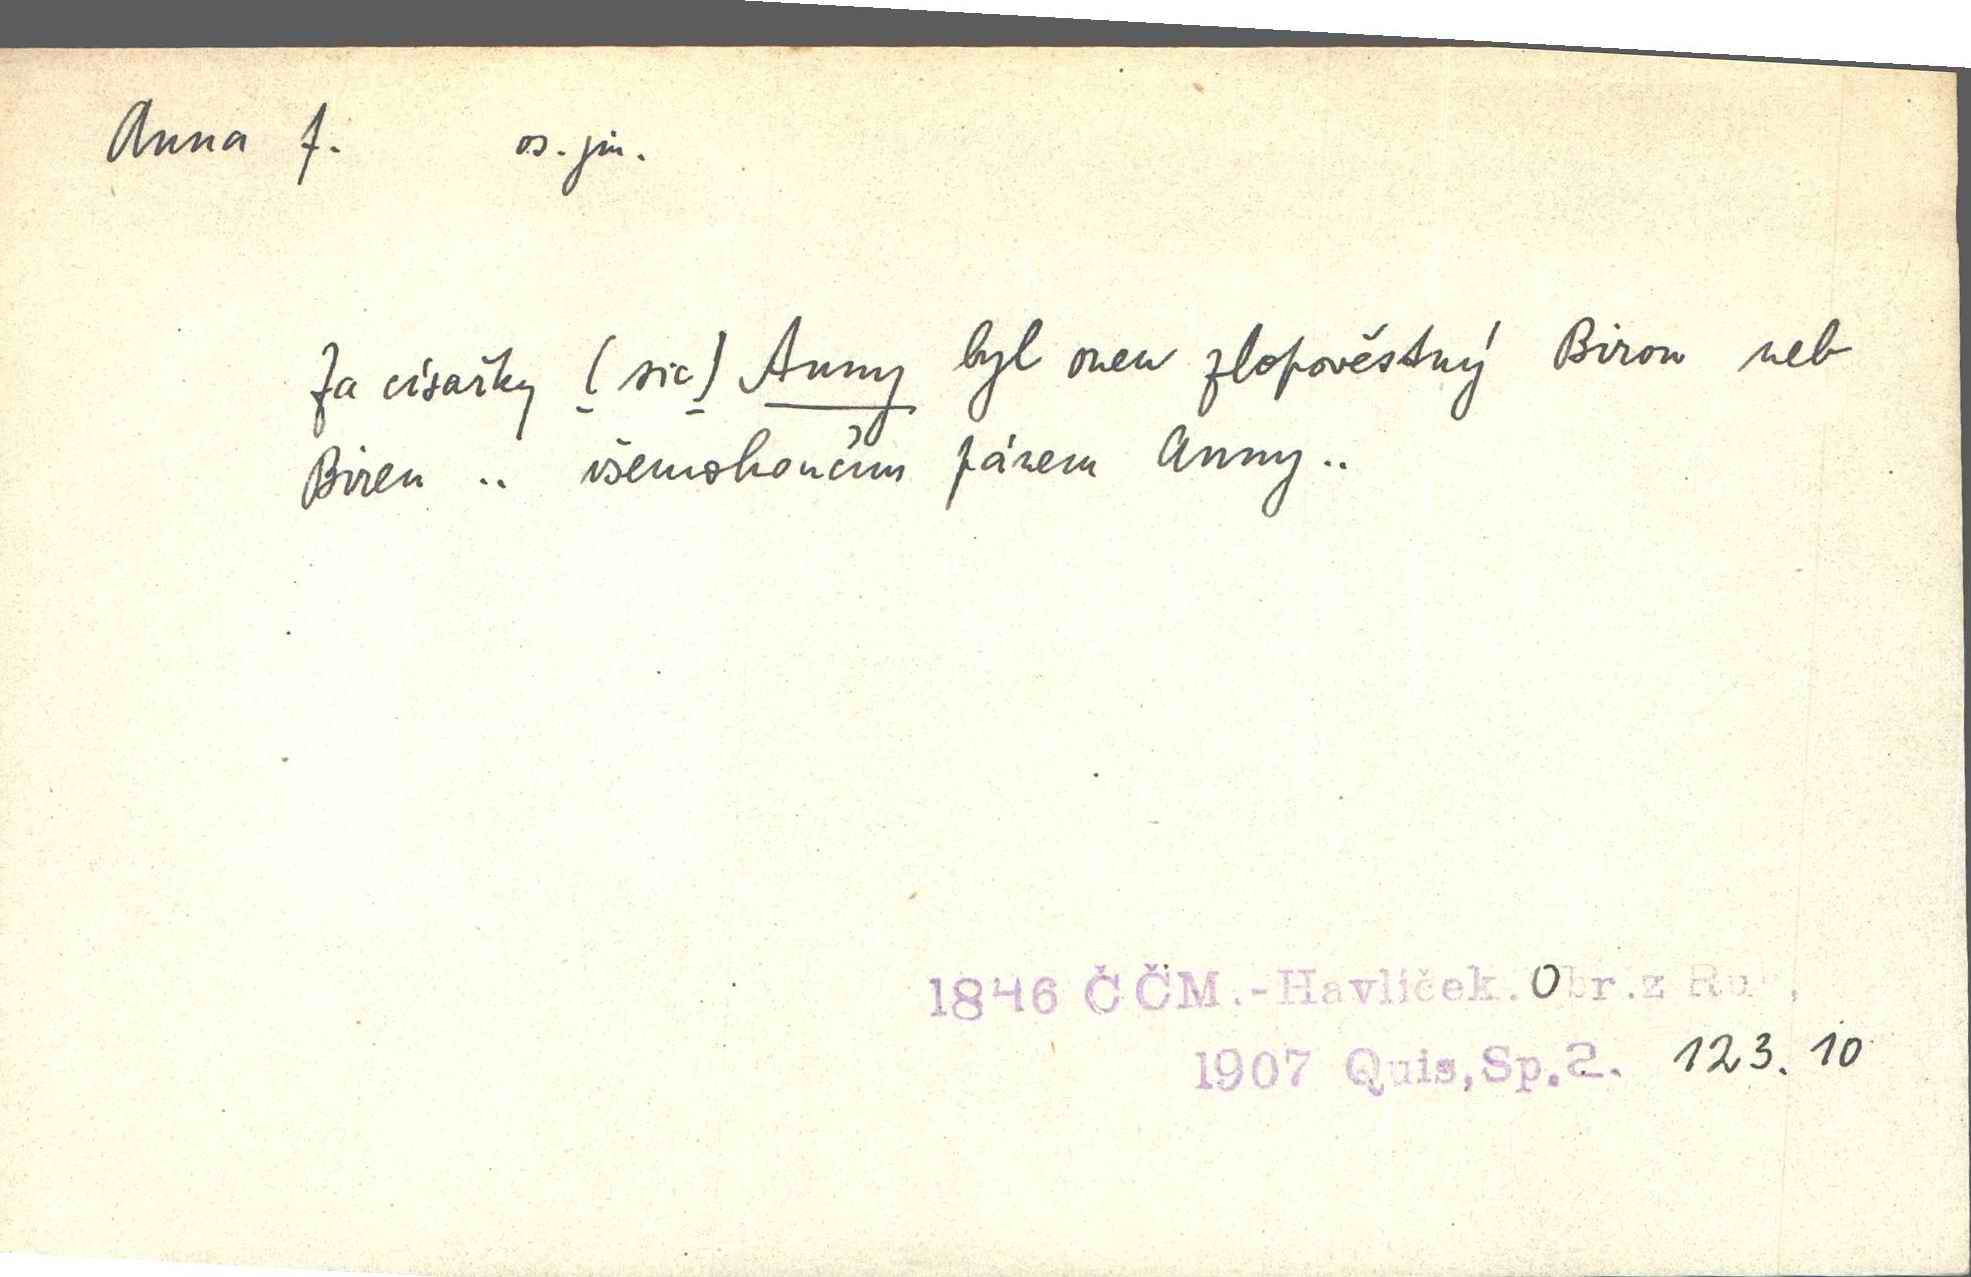 Anna f. os. jm.
Za císařky (sic) Anny byl onen zlopověstný Biron neb
Biren .. všemohoucím pánem Anny ..
1846 ČČM.-Havlíček. Obr. z
1907 Quis, Sp. 2. 123. 10